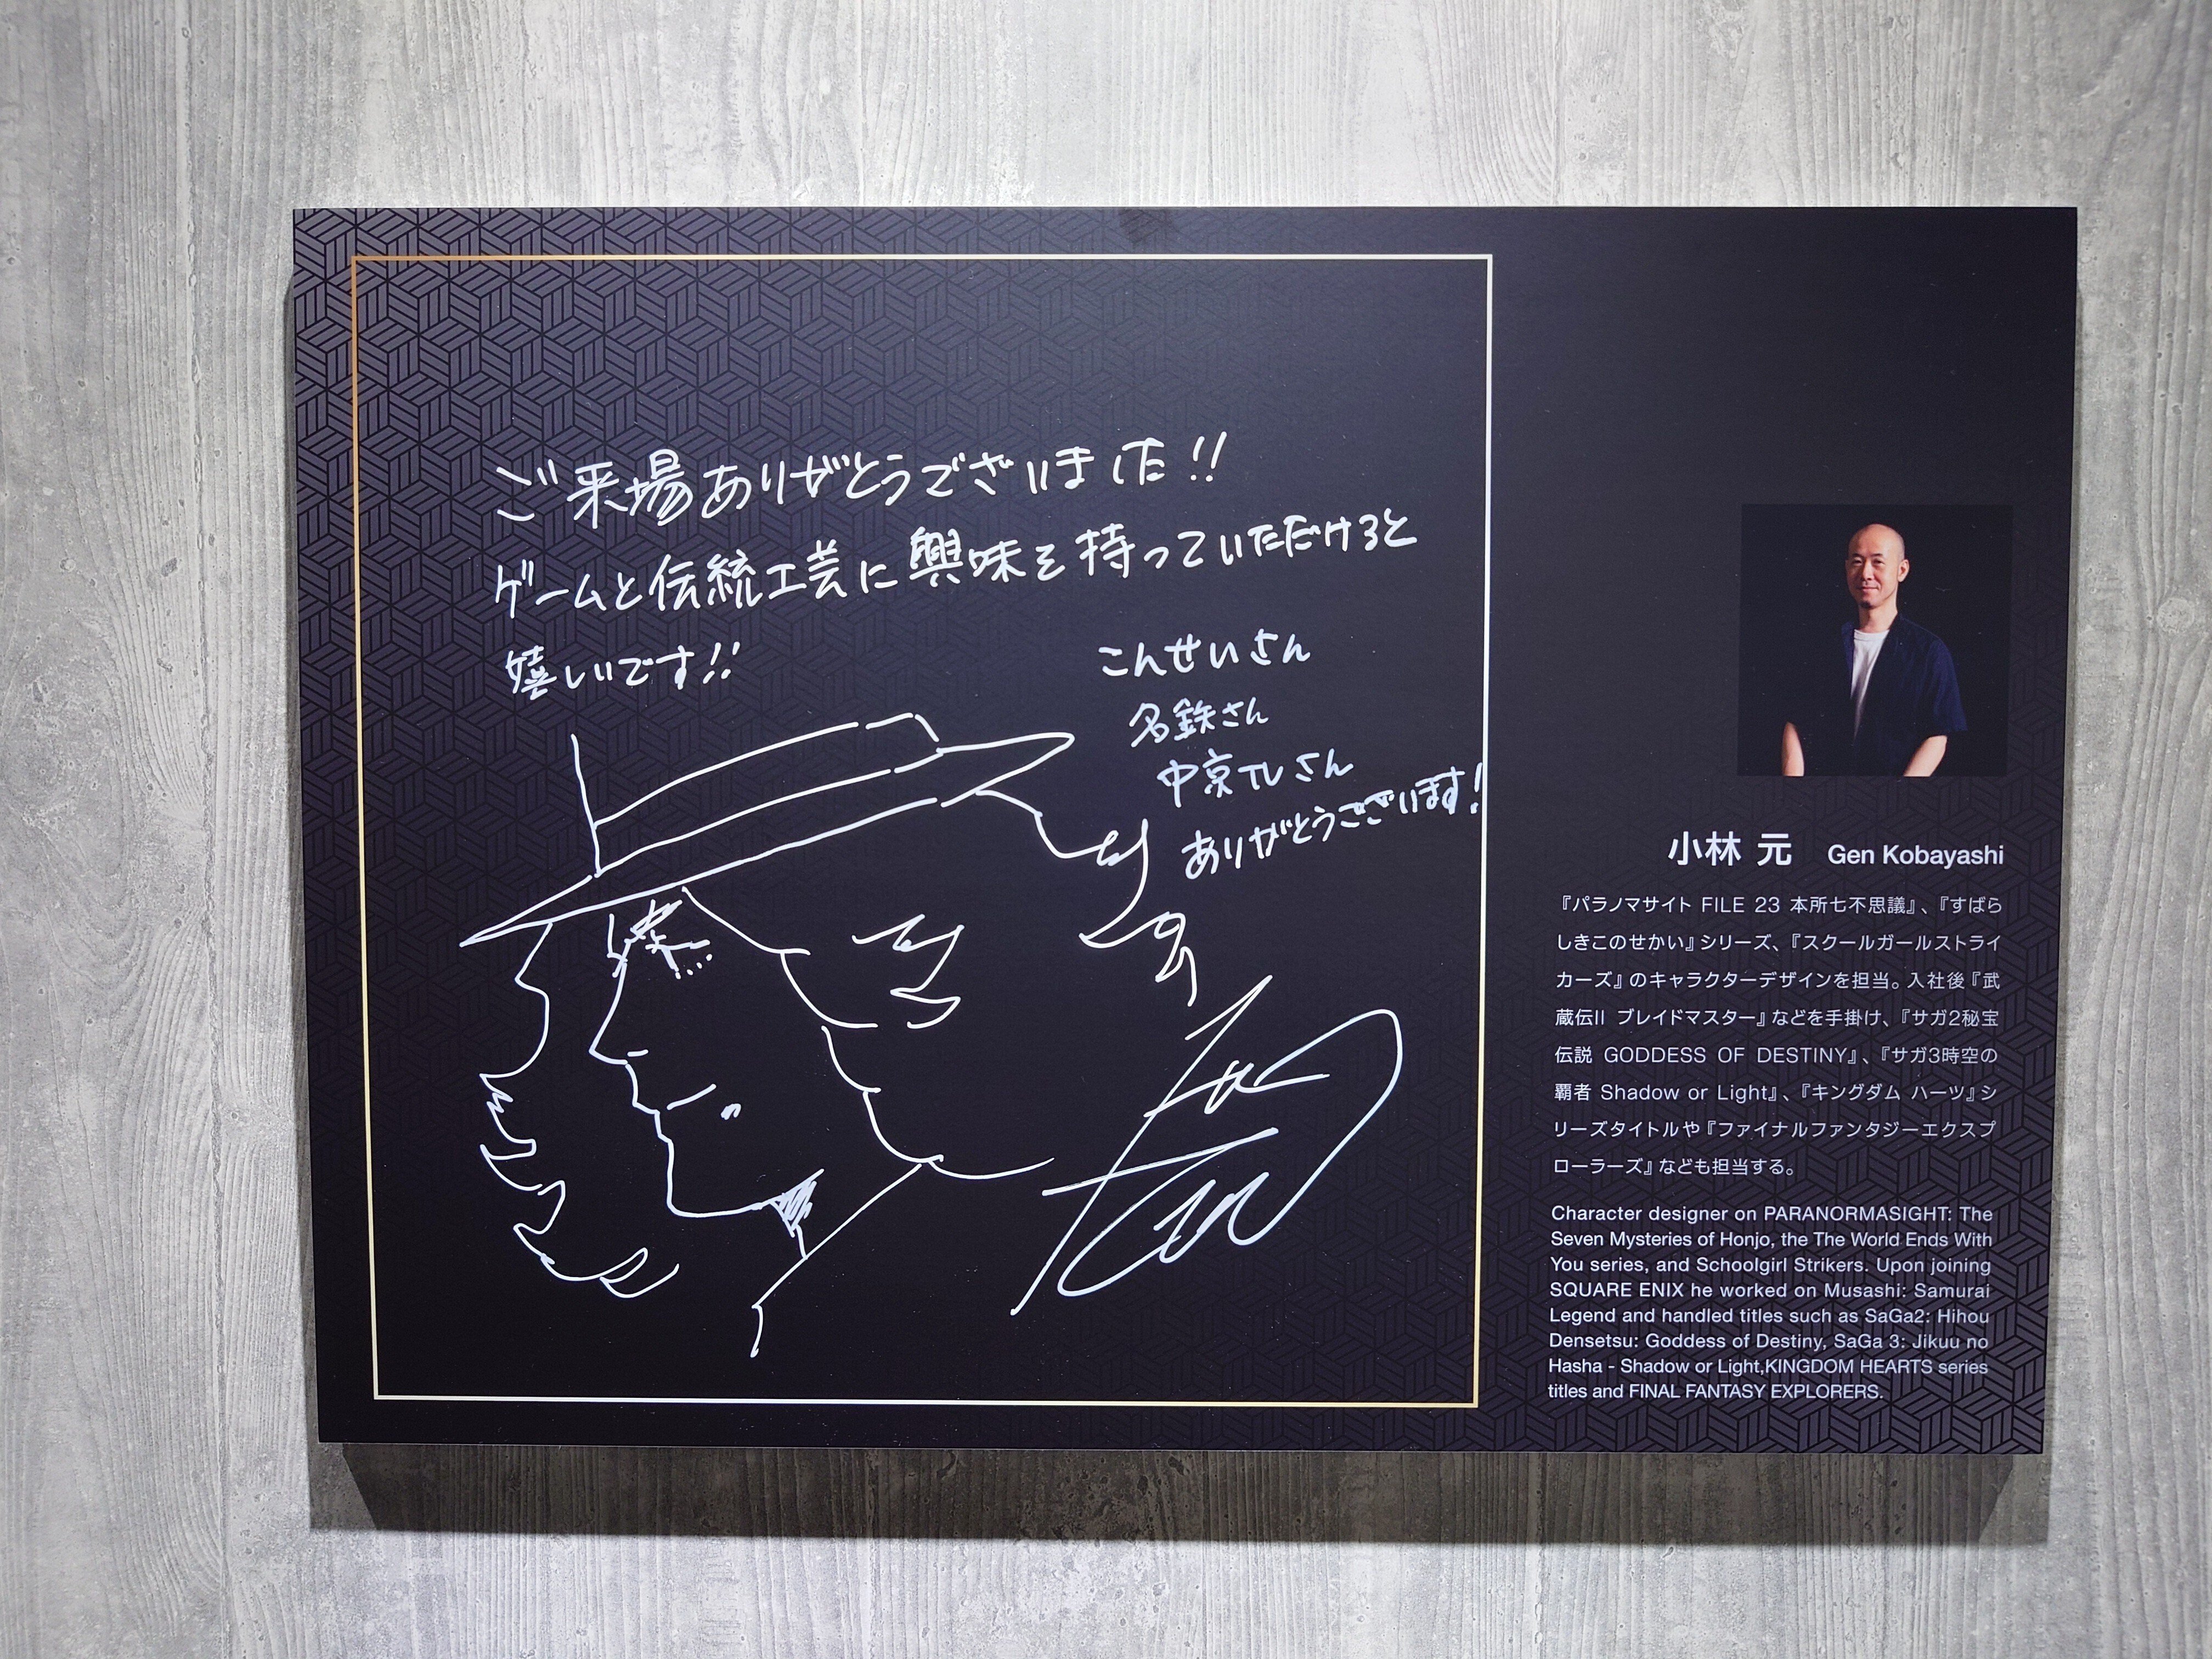 ご来場ありがとうございました!!
ゲームと伝統工芸に興味を持っていただけると
嬉しいです!!
こんせいさん
名鉄さん
中京TVさん
ありがとうございます!
小林 元 Gen Kobayashi
『パラノマサイト FILE 23 本所七不思議』、『すばら
しきこのせかい』シリーズ、『スクールガールストライ
カーズ』のキャラクターデザインを担当。入社後『武
蔵伝II ブレイドマスター』などを手掛け、『サガ2秘宝
伝説 GODDESS OF DESTINY』、『サガ3時空の
覇者 Shadow or Light』、『キングダム ハーツ』シ
リーズタイトルや『ファイナルファンタジーエクスプ
ローラーズ』なども担当する。
Character designer on PARANORMASIGHT: The
Seven Mysteries of Honjo, the The World Ends With
You series, and Schoolgirl Strikers. Upon joining
SQUARE ENIX he worked on Musashi: Samurai
Legend and handled titles such as SaGa2: Hihou
Densetsu: Goddess of Destiny, SaGa 3: Jikuu no
Hasha - Shadow or Light,KINGDOM HEARTS series
titles and FINAL FANTASY EXPLORERS.